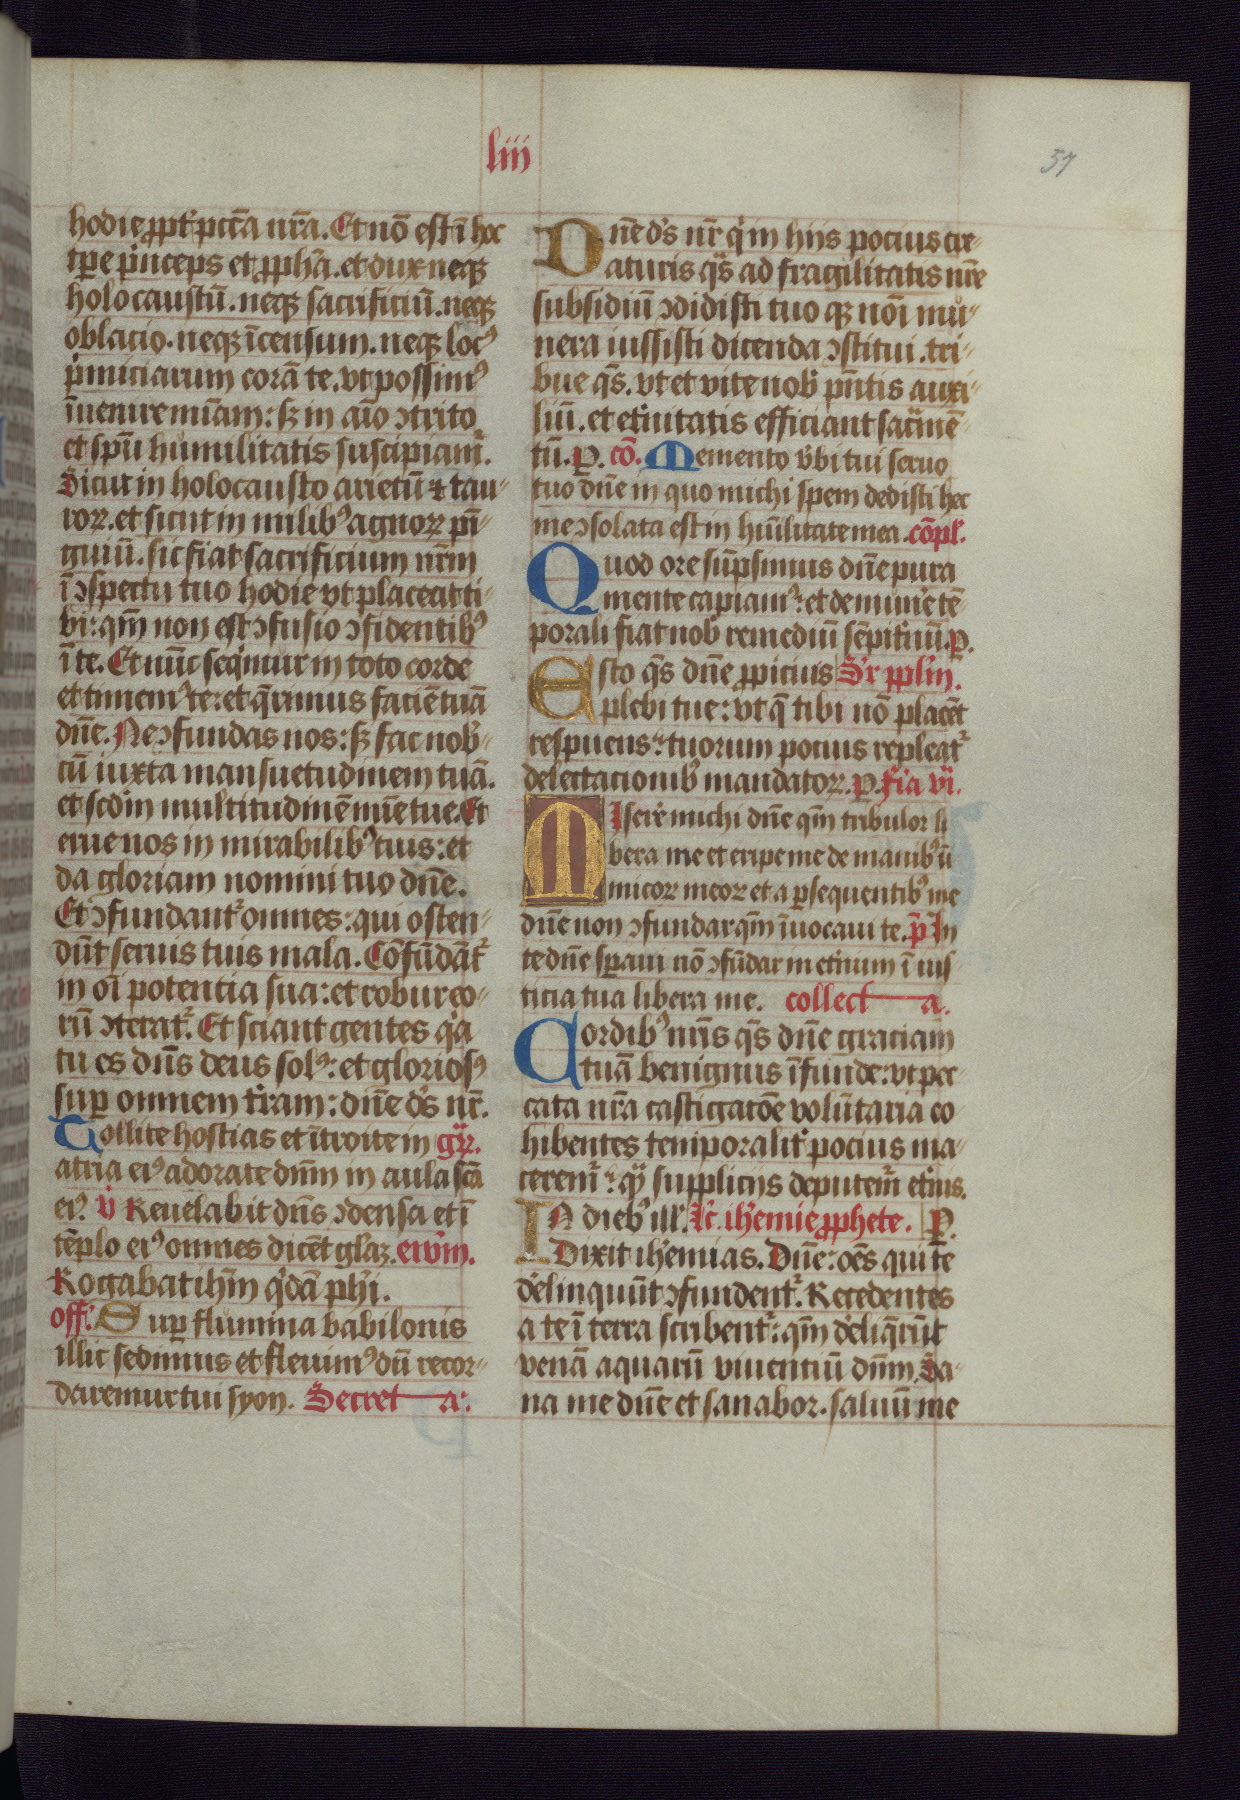 liii
57
hodie ꝓpt̉ pctā nr̄a. Et nō est ī hoc
tp̄e p̉nceps et ꝓph̄a. et dux neqꝫ
holocaustū. neqꝫ sacrificiū. neqꝫ
oblacio. neqꝫ īcensum. neqꝫ locꝰ
p̉miciarum corā te. vt possimꝰ
īuenire mīam: sꝫ in aīo ↄtrito
et spū humilitatis suscipiam̉.
Sicut in holocausto arietū ⁊ tau-
roꝝ. et sicut in milibꝰ agnoꝝ pī-
guiū. sic fiat sacrificium nrm̄
ī ↄspectu tuo hodie vt placeat ti-
bi: qm̄ non est ↄfusio ↄfidentibꝰ
ī te. Et nūc seq̉mur in toto corde
et timemꝰ te: et q̄rimus faciē tuā
dn̄e. Ne ↄfundas nos: sꝫ fac nob̉-
cū iuxta mansuetudinem tuā.
et scd̄m multitudinē mīe tue. Et
erue nos in mirabilibꝰ tuis: et
da gloriam nomini tuo dn̄e.
Et ↄfundant̉ omnes: qui osten-
dūt seruis tuis mala. Cōfūdāt̉
in oī potentia sua: et robur eo-
rū ↄterat̉. Et sciant gentes q̉a
tu es dn̄s deus solꝰ: et gloriosꝰ
suꝑ omnem t̉ram: dn̄e ds̄ nr̄.
Tollite hostias et ītroite in gr̄.
atria eiꝰ adorate dn̄m in aula scā
eiꝰ. v̉ Reuelabit dn̄s ↄdensa et ī
tēplo eiꝰ omnes dicēt gl̄aꝫ. ewm̄.
Rogabat ih̄m q̉dā ph̉i.
off̉. Suꝑ flumina babilonis
illic sedimus et fleuimꝰ dū recor-
daremur tui syon. Secreta:
Dn̄e ds̄ nr̄ q̉ in hiis pocius cre-
aturis qs̄ ad fragilitatis nr̄e
subsidiū ↄdidisti tuo qꝫ nōi mu-
nera iussisti dicenda ↄstitui. tri-
bue qs̄. vt et vite nob̉ pn̄tis auxi-
liū. et et̉nitatis efficiant sac̉mē-
tū. P. cō. Memento v̉bi tui seruo
tuo dn̄e in quo michi spem dedisti hec
me ↄsolata est in hūilitate mea. cōpl̉.
Quod ore sūpsimus dn̄e pura
mente capiam̉: et de mun̉e tē-
porali fiat nob̉ remediū sēpit̉nū. P.
Esto qs̄ dn̄e ꝓpicius Sr̉ ppl̄m.
plebi tue: vt q̄ tibi nō placēt
respuens: tuorum pocius repleat̉
delectacionib̉ mandatoꝝ. P. fỉa vỉ.
Miserere michi dn̄e qm̄ tribulor li
bera me et eripe me de manibꝰ ī
micoꝝ meoꝝ et a ꝑsequentibꝰ me
dn̄e non ↄfundar qm̄ īuocaui te. p̄ In
te dn̄e sꝑaui nō ↄfūdar in et̉num ī ius-
ticia tua libera me. collecta.
Cordibꝰ nr̄is qs̄ dn̄e graciam
tuā benignus īfunde: vt pec-
cata nr̄a castigacōe volūtaria co-
hibentes temporalit̉ pocius ma-
cerem̉: q̉ suppliciis deputem̉ et̉nis.
In diebꝰ ill̉. Lc̄. ih̉emie ꝓphete. P.
Dixit ih̉emias. Dn̄e: oēs qui te
delinquūt ↄfundent̉. Recedentes
a te ī terra scribent̉: qm̄ deliq̄rūt
venā aquarū viuentiū dn̄m. Sa-
na me dn̄e et sanabor. saluū me